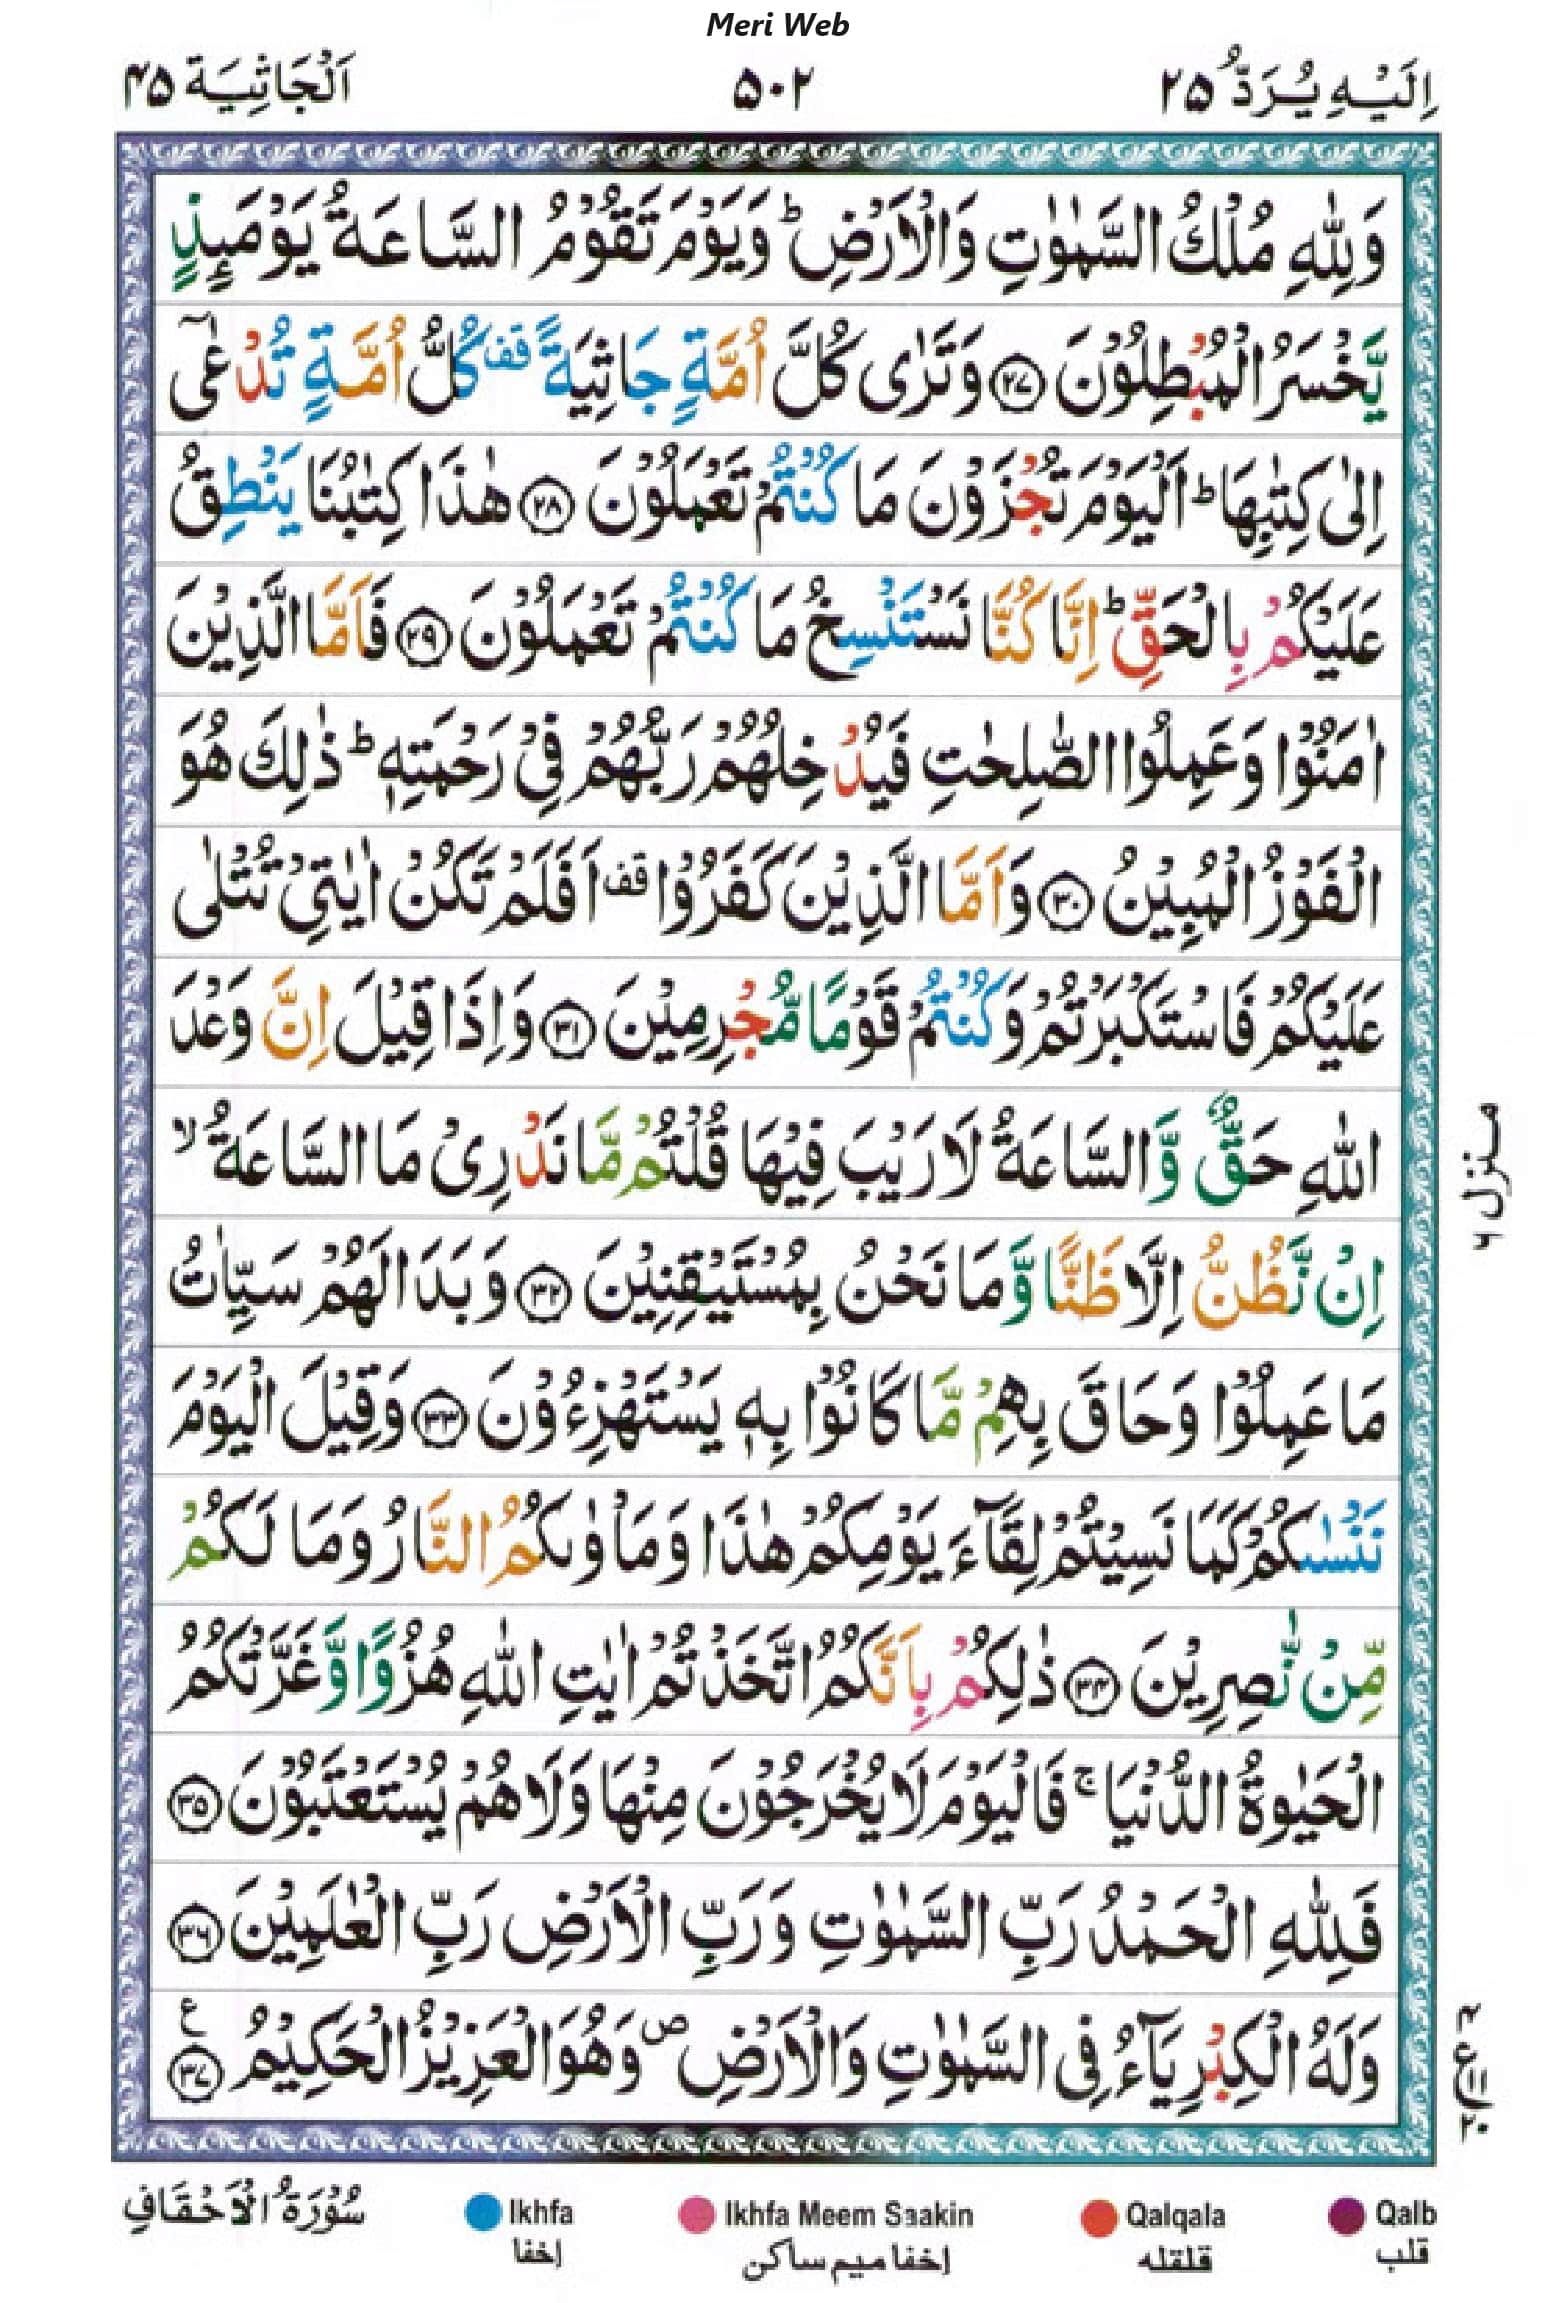 Meri Web
اِلَيْهِ يُرَدُّ ۲۵
۵۰۲
اَلْجَاثِيَة ۴۵
وَلِلّٰهِ مُلْكُ السَّمٰوٰتِ وَالْاَرْضِ ؕ وَيَوْمَ تَقُوْمُ السَّاعَةُ يَوْمَىِٕذٍ
يَّخْسَرُ الْمُبْطِلُوْنَ ﴿۲۷﴾ وَتَرٰى كُلَّ اُمَّةٍ جَاثِيَةً قف كُلُّ اُمَّةٍ تُدْعٰۤى
اِلٰى كِتٰبِهَا ؕ اَلْيَوْمَ تُجْزَوْنَ مَا كُنْتُمْ تَعْمَلُوْنَ ﴿۲۸﴾ هٰذَا كِتٰبُنَا يَنْطِقُ
عَلَيْكُمْ بِالْحَقِّ ؕ اِنَّا كُنَّا نَسْتَنْسِخُ مَا كُنْتُمْ تَعْمَلُوْنَ ﴿۲۹﴾ فَاَمَّا الَّذِيْنَ
اٰمَنُوْا وَعَمِلُوا الصّٰلِحٰتِ فَيُدْخِلُهُمْ رَبُّهُمْ فِىْ رَحْمَتِهٖ ؕ ذٰلِكَ هُوَ
الْفَوْزُ الْمُبِيْنُ ﴿۳۰﴾ وَاَمَّا الَّذِيْنَ كَفَرُوْا قف اَفَلَمْ تَكُنْ اٰيٰتِىْ تُتْلٰى
عَلَيْكُمْ فَاسْتَكْبَرْتُمْ وَكُنْتُمْ قَوْمًا مُّجْرِمِيْنَ ﴿۳۱﴾ وَاِذَا قِيْلَ اِنَّ وَعْدَ
اللّٰهِ حَقٌّ وَّالسَّاعَةُ لَا رَيْبَ فِيْهَا قُلْتُمْ مَّا نَدْرِىْ مَا السَّاعَةُ ۙ
اِنْ نَّظُنُّ اِلَّا ظَنًّا وَّمَا نَحْنُ بِمُسْتَيْقِنِيْنَ ﴿۳۲﴾ وَبَدَا لَهُمْ سَيِّاٰتُ
مَا عَمِلُوْا وَحَاقَ بِهِمْ مَّا كَانُوْا بِهٖ يَسْتَهْزِءُوْنَ ﴿۳۳﴾ وَقِيْلَ الْيَوْمَ
نَنْسٰىكُمْ كَمَا نَسِيْتُمْ لِقَآءَ يَوْمِكُمْ هٰذَا وَمَاْوٰىكُمُ النَّارُ وَمَا لَكُمْ
مِّنْ نّٰصِرِيْنَ ﴿۳۴﴾ ذٰلِكُمْ بِاَنَّكُمُ اتَّخَذْتُمْ اٰيٰتِ اللّٰهِ هُزُوًا وَّغَرَّتْكُمُ
الْحَيٰوةُ الدُّنْيَا ۚ فَالْيَوْمَ لَا يُخْرَجُوْنَ مِنْهَا وَلَا هُمْ يُسْتَعْتَبُوْنَ ﴿۳۵﴾
فَلِلّٰهِ الْحَمْدُ رَبِّ السَّمٰوٰتِ وَرَبِّ الْاَرْضِ رَبِّ الْعٰلَمِيْنَ ﴿۳۶﴾
وَلَهُ الْكِبْرِيَآءُ فِى السَّمٰوٰتِ وَالْاَرْضِ ص وَهُوَ الْعَزِيْزُ الْحَكِيْمُ ﴿۳۷﴾ ع
منزل ۶
۴ ع ۱۱ ۲۰
سُوْرَةُ الْاَحْقَافِ
Ikhfa
إخفا
Ikhfa Meem Saakin
إخفا ميم ساكن
Qalqala
قلقله
Qalb
قلب